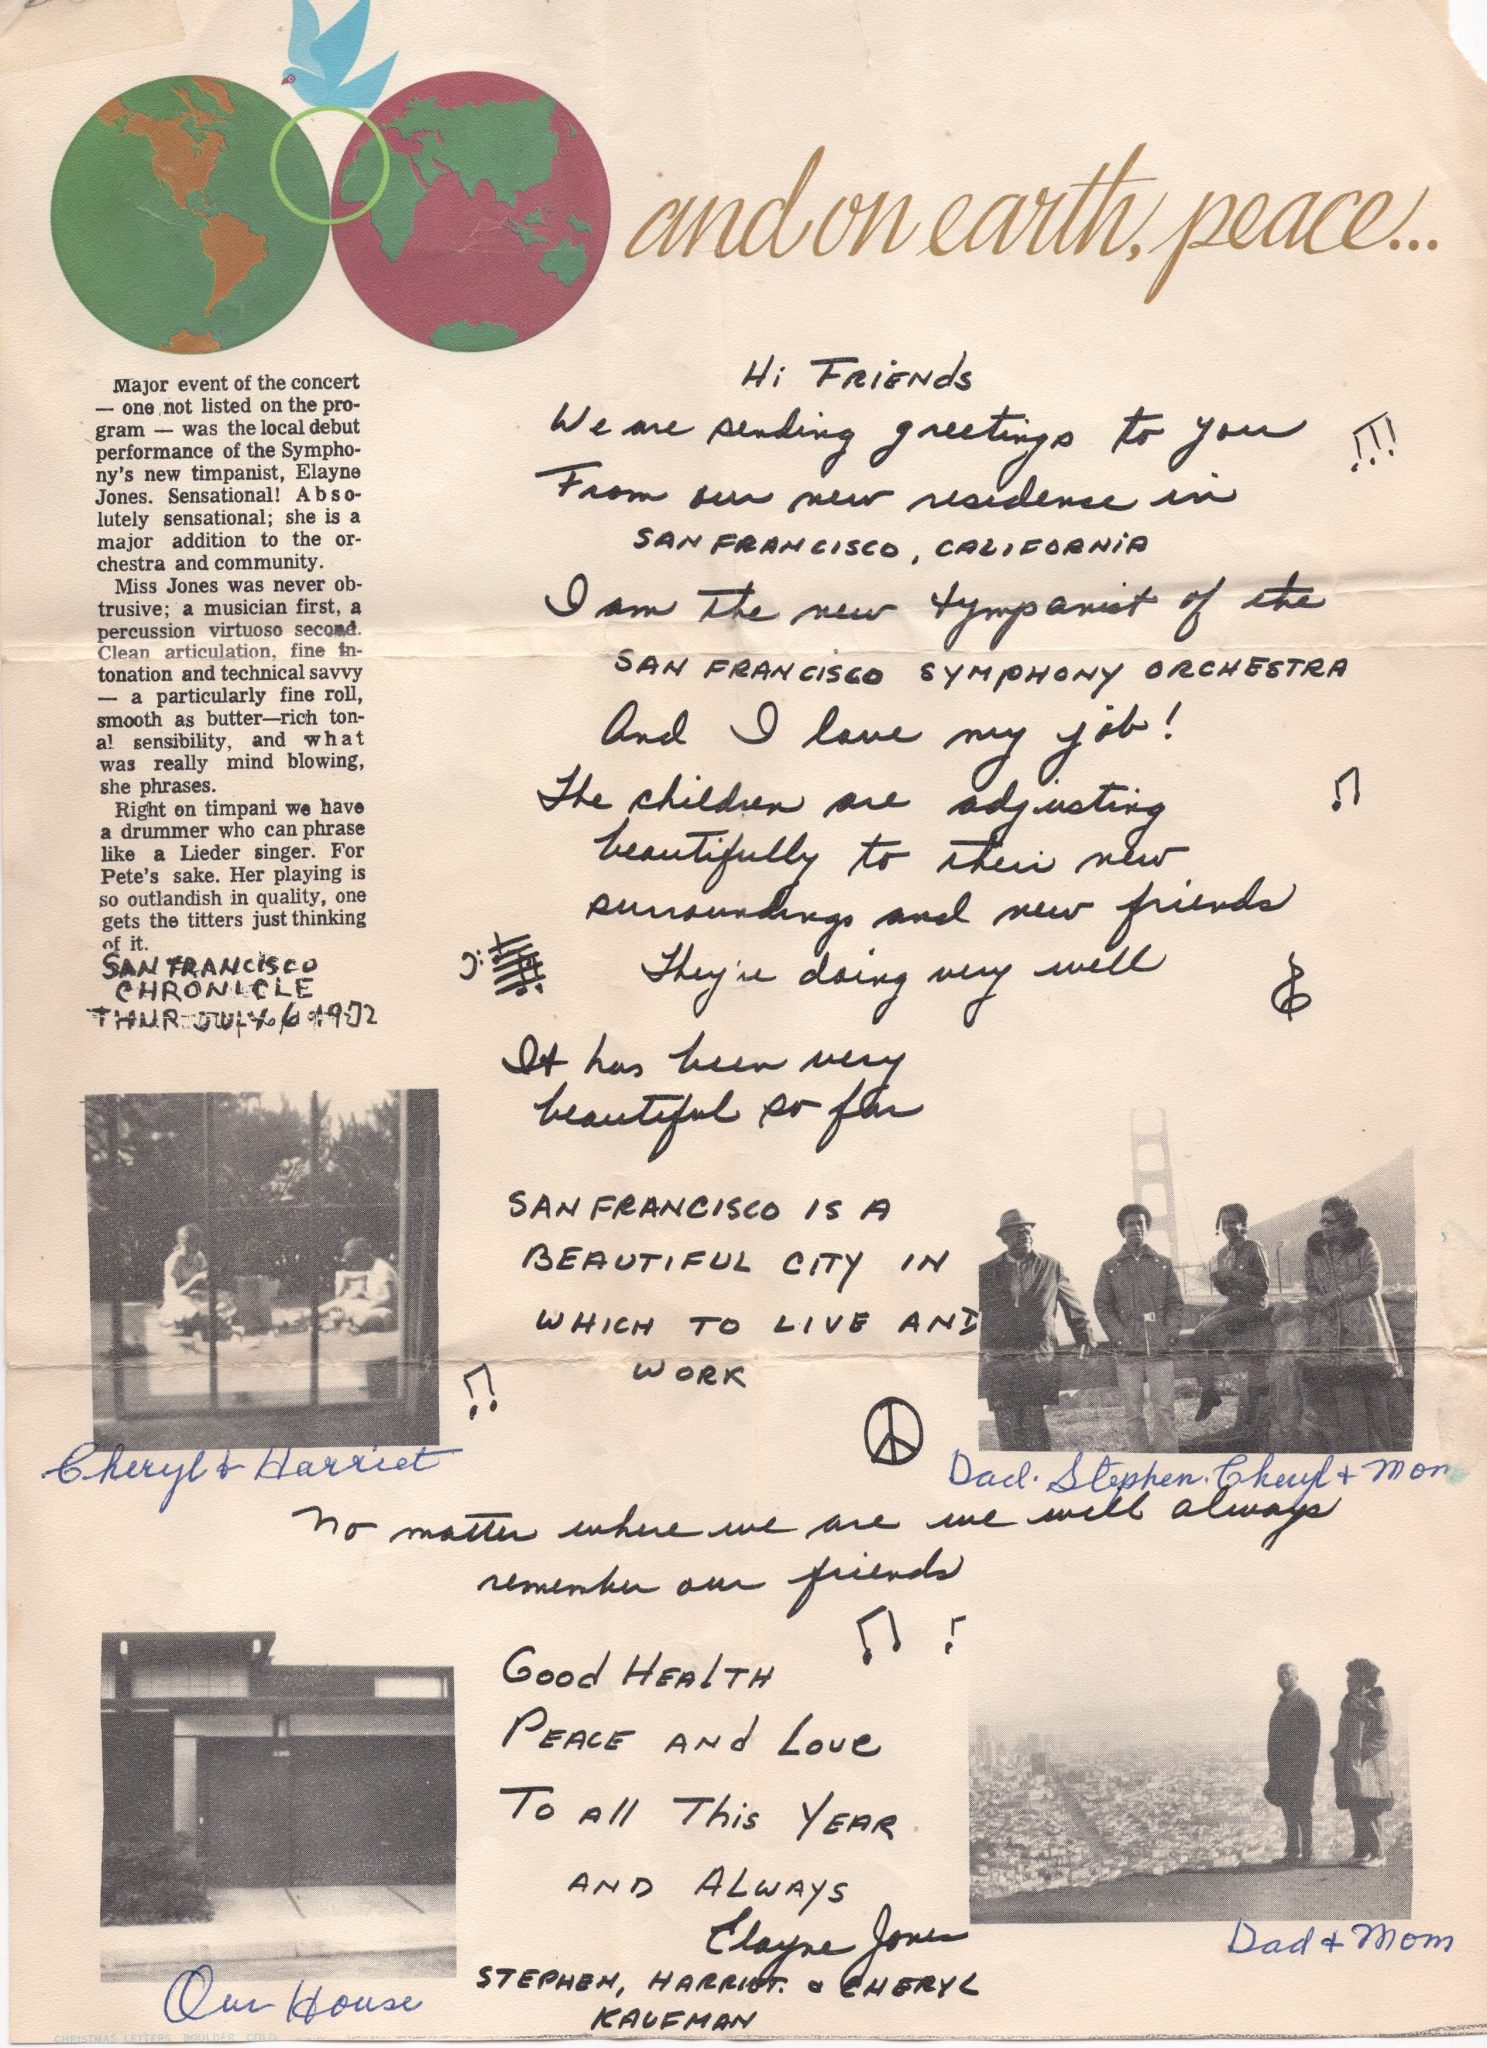 and on earth, peace...
Major event of the concert
— one not listed on the pro-
gram — was the local debut
performance of the Sympho-
ny's new timpanist, Elayne
Jones. Sensational! Abso-
lutely sensational; she is a
major addition to the or-
chestra and community.
Miss Jones was never ob-
trusive; a musician first, a
percussion virtuoso second.
Clean articulation, fine in-
tonation and technical savvy
— a particularly fine roll,
smooth as butter—rich ton-
al sensibility, and what
was really mind blowing,
she phrases.
Right on timpani we have
a drummer who can phrase
like a Lieder singer. For
Pete's sake. Her playing is
so outlandish in quality, one
gets the titters just thinking
of it.
SAN FRANCISCO
CHRONICLE
THUR JULY 6 1972
Hi FRiENds
We are sending greetings to you
From our new residense in
SAN FRANCISCO, CALIFORNiA
I am the new tympanist of the
SAN FRANCISCO SYMPHONY ORCHESTRA
And I love my job!
The children are adjusting
beautifully to their new
surroundings and new friends
They're doing very well
It has been very
beautiful so far
SAN FRANCISCO IS A
BEAUTIFUL CITY IN
WHICH TO LIVE AND
WORK
Cheryl & Harriet
Dad. Stephen. Cheryl & Mom
No matter where we are we will always
remember our friends
Good HEALTH
PEACE ANd Love
To All This YEAR
AND ALWAYS
Elayne Jones
STEPHEN, HARRIET. & CHERYL
KAUFMAN
Our House
Dad & Mom
CHRISTMAS LETTERS BOULDER COLO